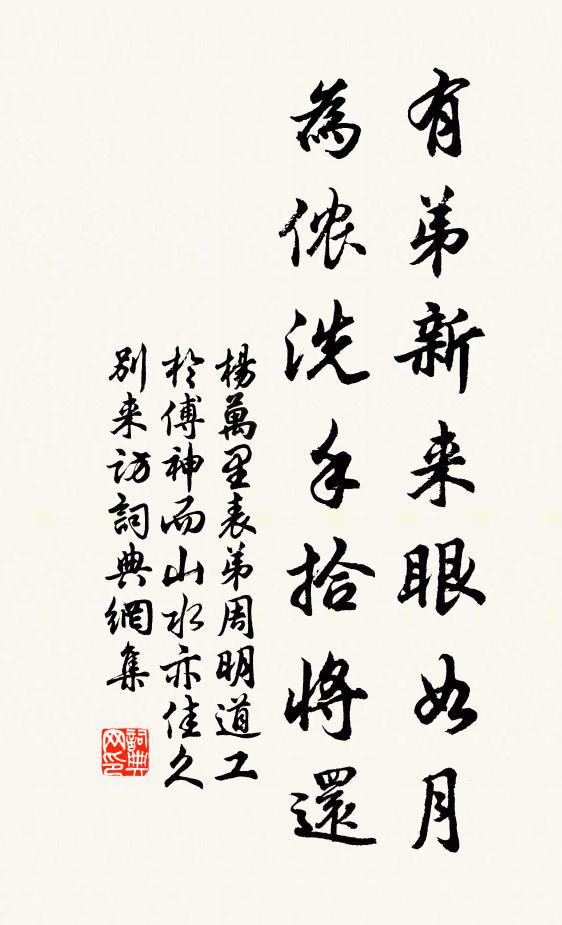 有弟新来眼如月
為儂洗手拾將還
楊萬里表弟周明道工
於傅神而山水亦佳久
别来訪詞典網集
詞典
网印